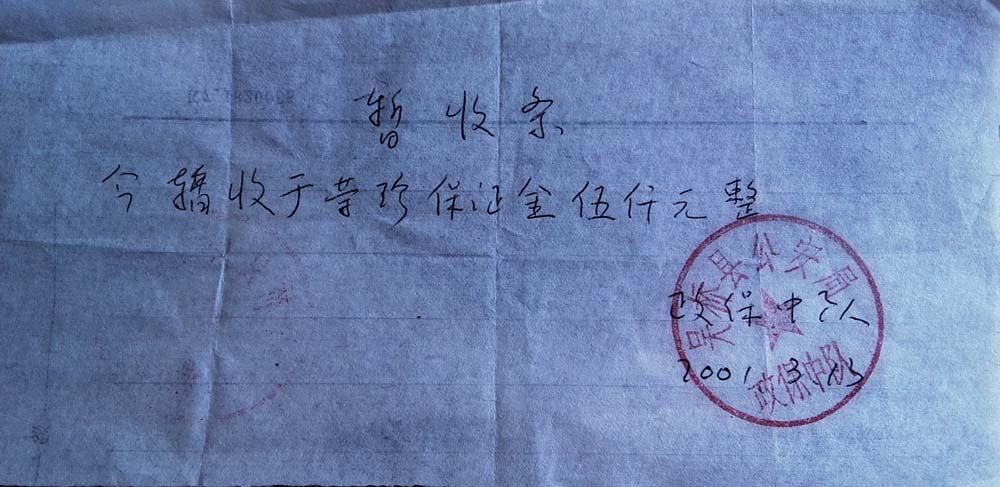 暂收条
今暂收于荣珍保证金伍仟元整
政保中队
2001 3 23
县公安局
政保中队